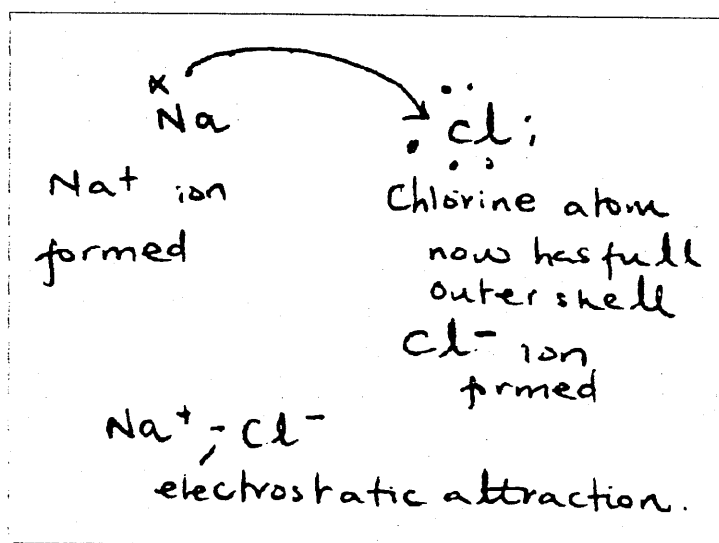 x
Na
Cl
Na+ ion
formed
Chlorine atom
now has full
outer shell
Cl- ion
formed
Na+ - Cl-
electrostatic attraction.